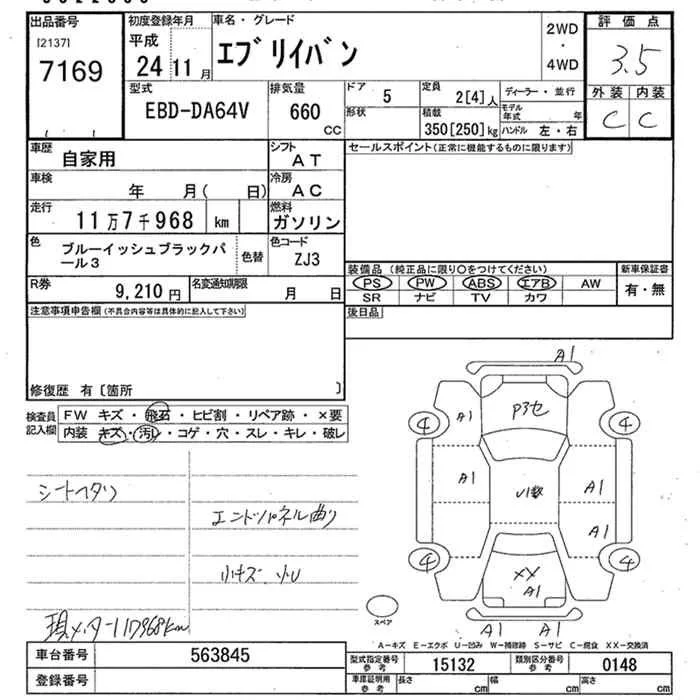 出品番号 初度登録年月 車名・グレード 2WD ・ 4WD 評価点
[2137] 7169 平成 24 11月 エブリイバン 3.5
外装 内装
C C
型式 EBD-DA64V 排気量 660 CC ドア 5 定員 2[4]人 ディーラー・並行
形状 積載 350[250]kg モデル年式 年 ハンドル 左・右
車歴 自家用 シフト AT セールスポイント(正常に機能するものに限ります)
車検 年 月( 日) 冷房 AC
走行 11万7千968 km 燃料 ガソリン
色 ブルーイッシュブラックパール3 色替 色コード ZJ3
装備品 (純正品に限り○をつけてください) 新車保証書
PS PW ABS エアB AW 有・無
SR ナビ TV カワ
R券 9,210円 名変通知期限 月 日
後日品
注意事項申告欄(不具合内容等は具体的に記入して下さい)
修復歴 有〔箇所 〕
検査員記入欄 FW キズ・飛石・ヒビ割・リペア跡・×要
内装 キズ・汚レ・コゲ・穴・スレ・キレ・破レ
シートヘタリ
エンドパネル曲り
小キズ 小U
現メーター117968km
A1
P3セ
A1
4 4
A1 U1数 A1
A1
4 4
XX
A1
A1 A1
スペア
A-キズ E-エクボ U-凹み W-補修跡 S-サビ C-腐食 XX-交換済
車台番号 563845 型式指定番号 参考 15132 類別区分番号 参考 0148
登録番号 車庫証明用 参考 長さ cm 幅 cm 高さ cm